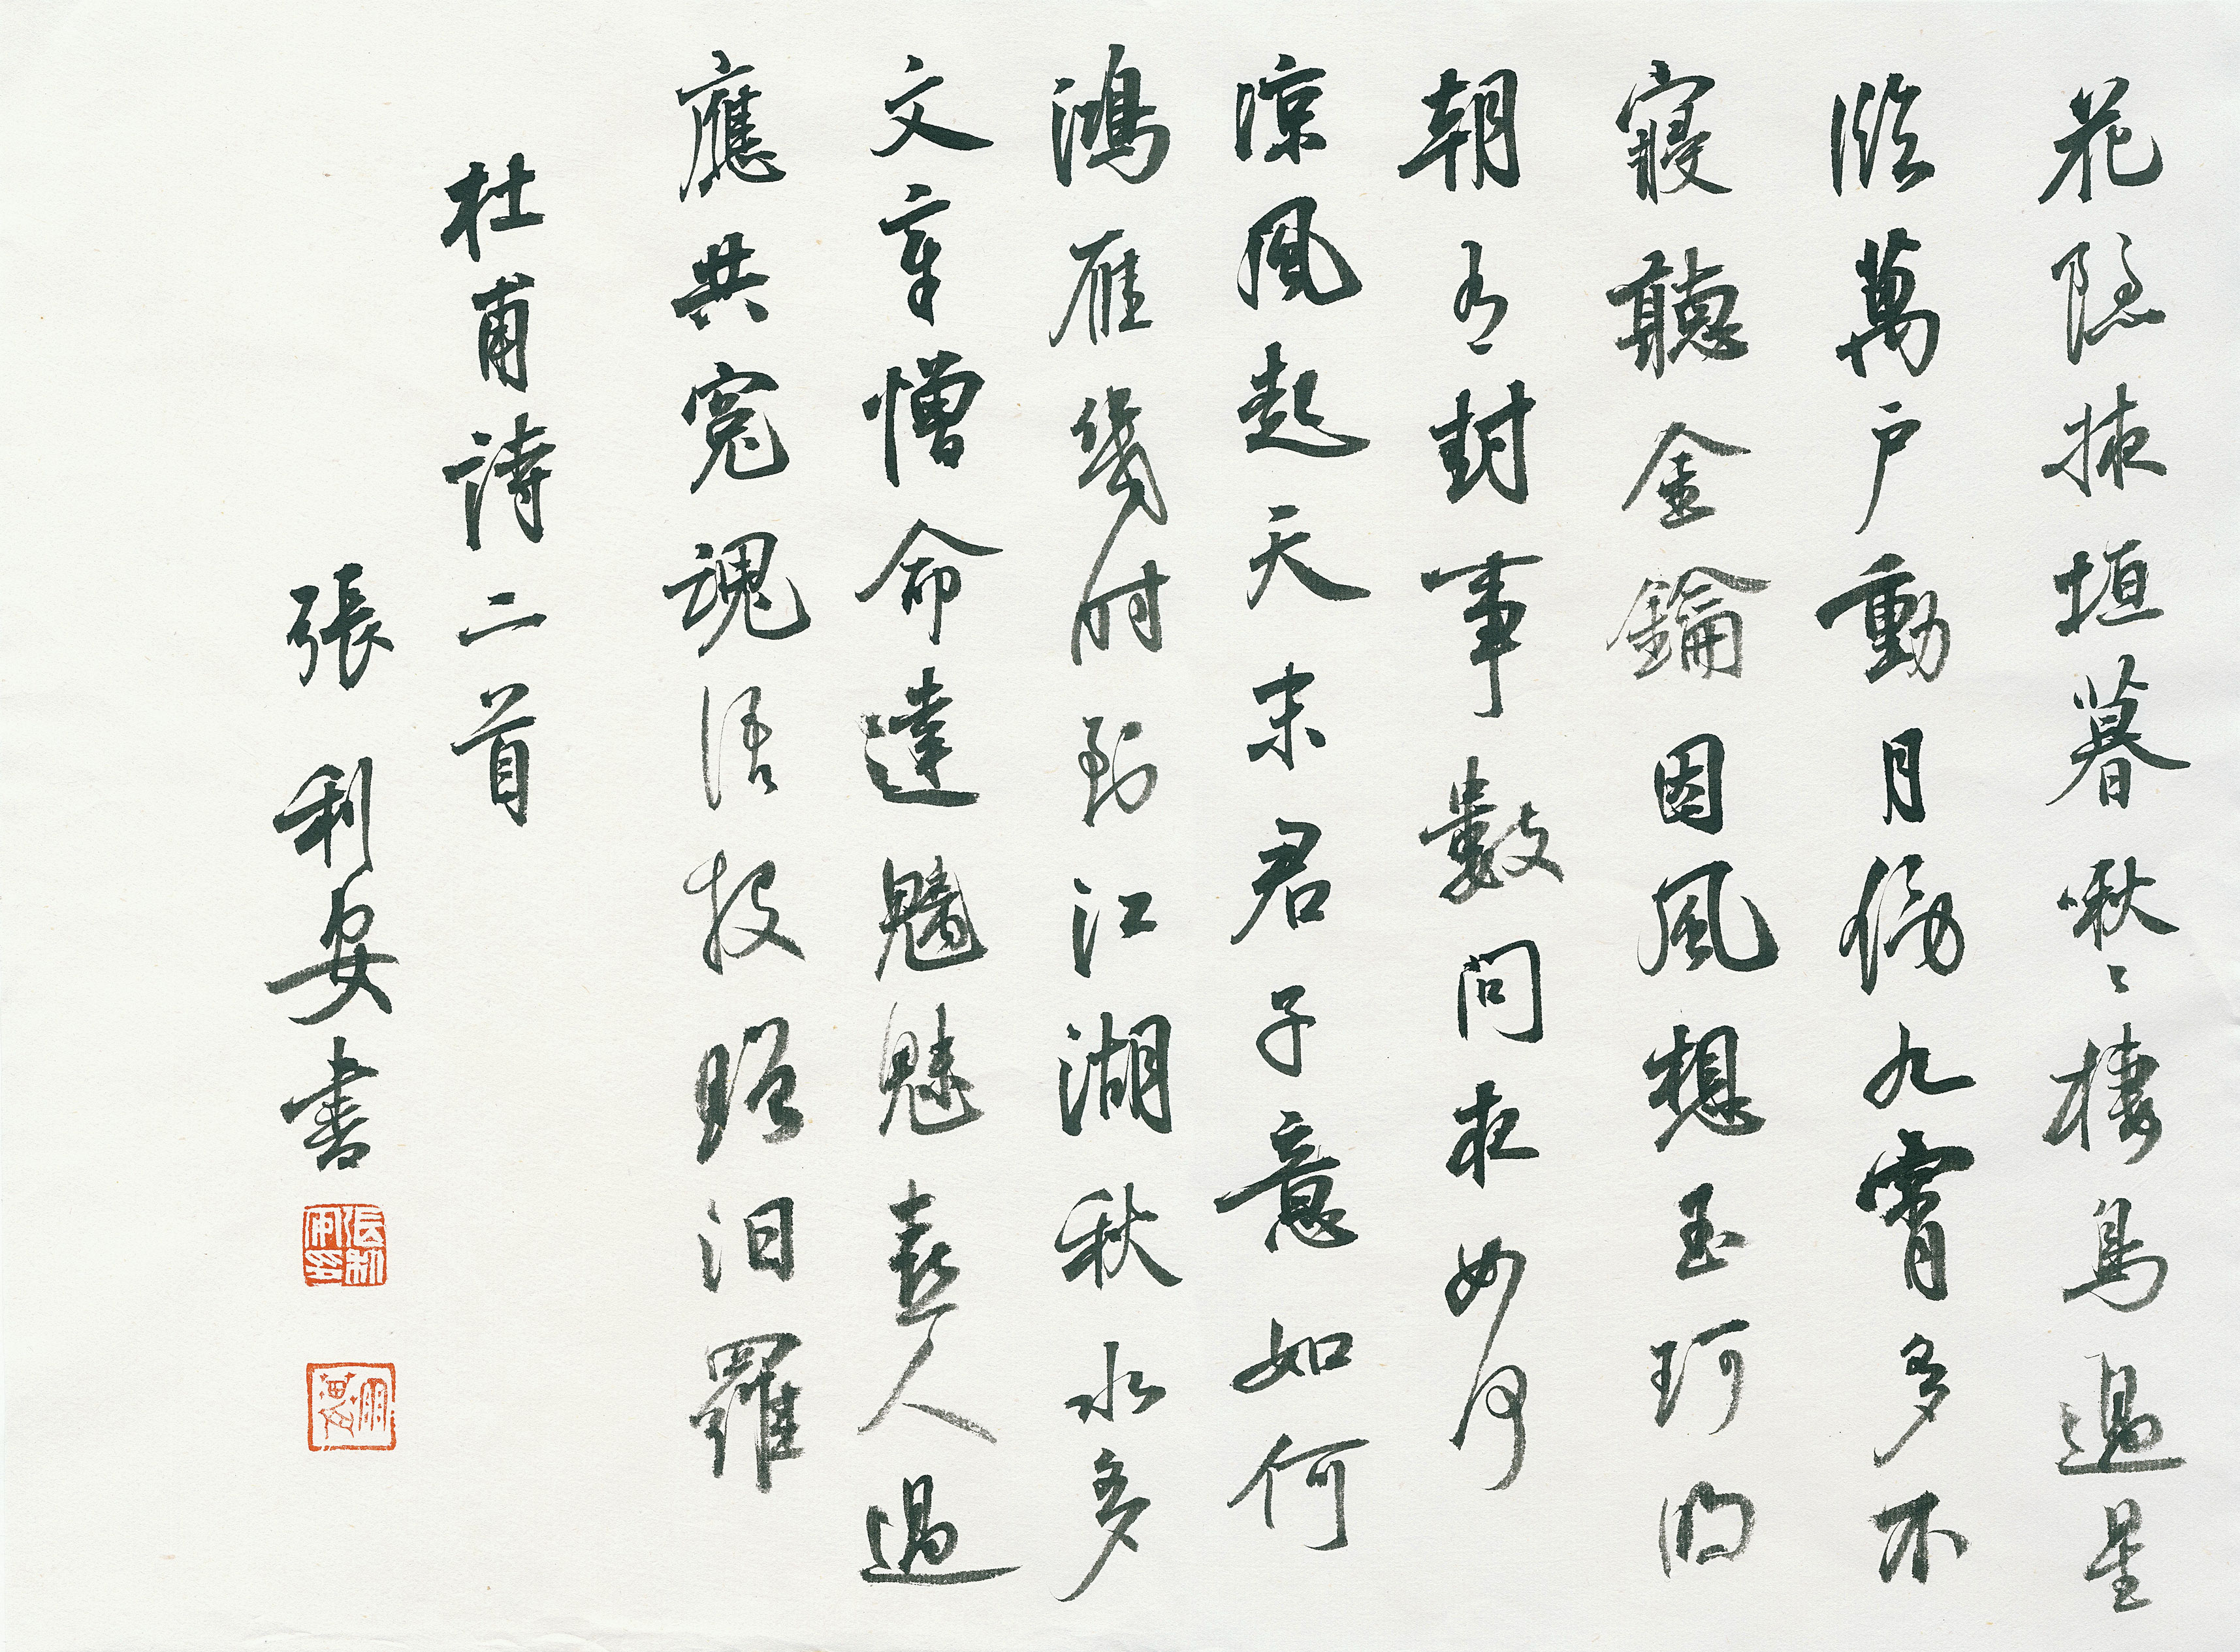 花隱掖垣暮啾々棲鳥過星
臨萬戶動月傍九霄多不
寢聽金鑰因風想玉珂明
朝有封事數問夜如何
涼風起天末君子意如何
鴻雁幾時到江湖秋水多
文章憎命達魑魅喜人過
應共冤魂語投賂汨羅
杜甫詩二首
張利安書